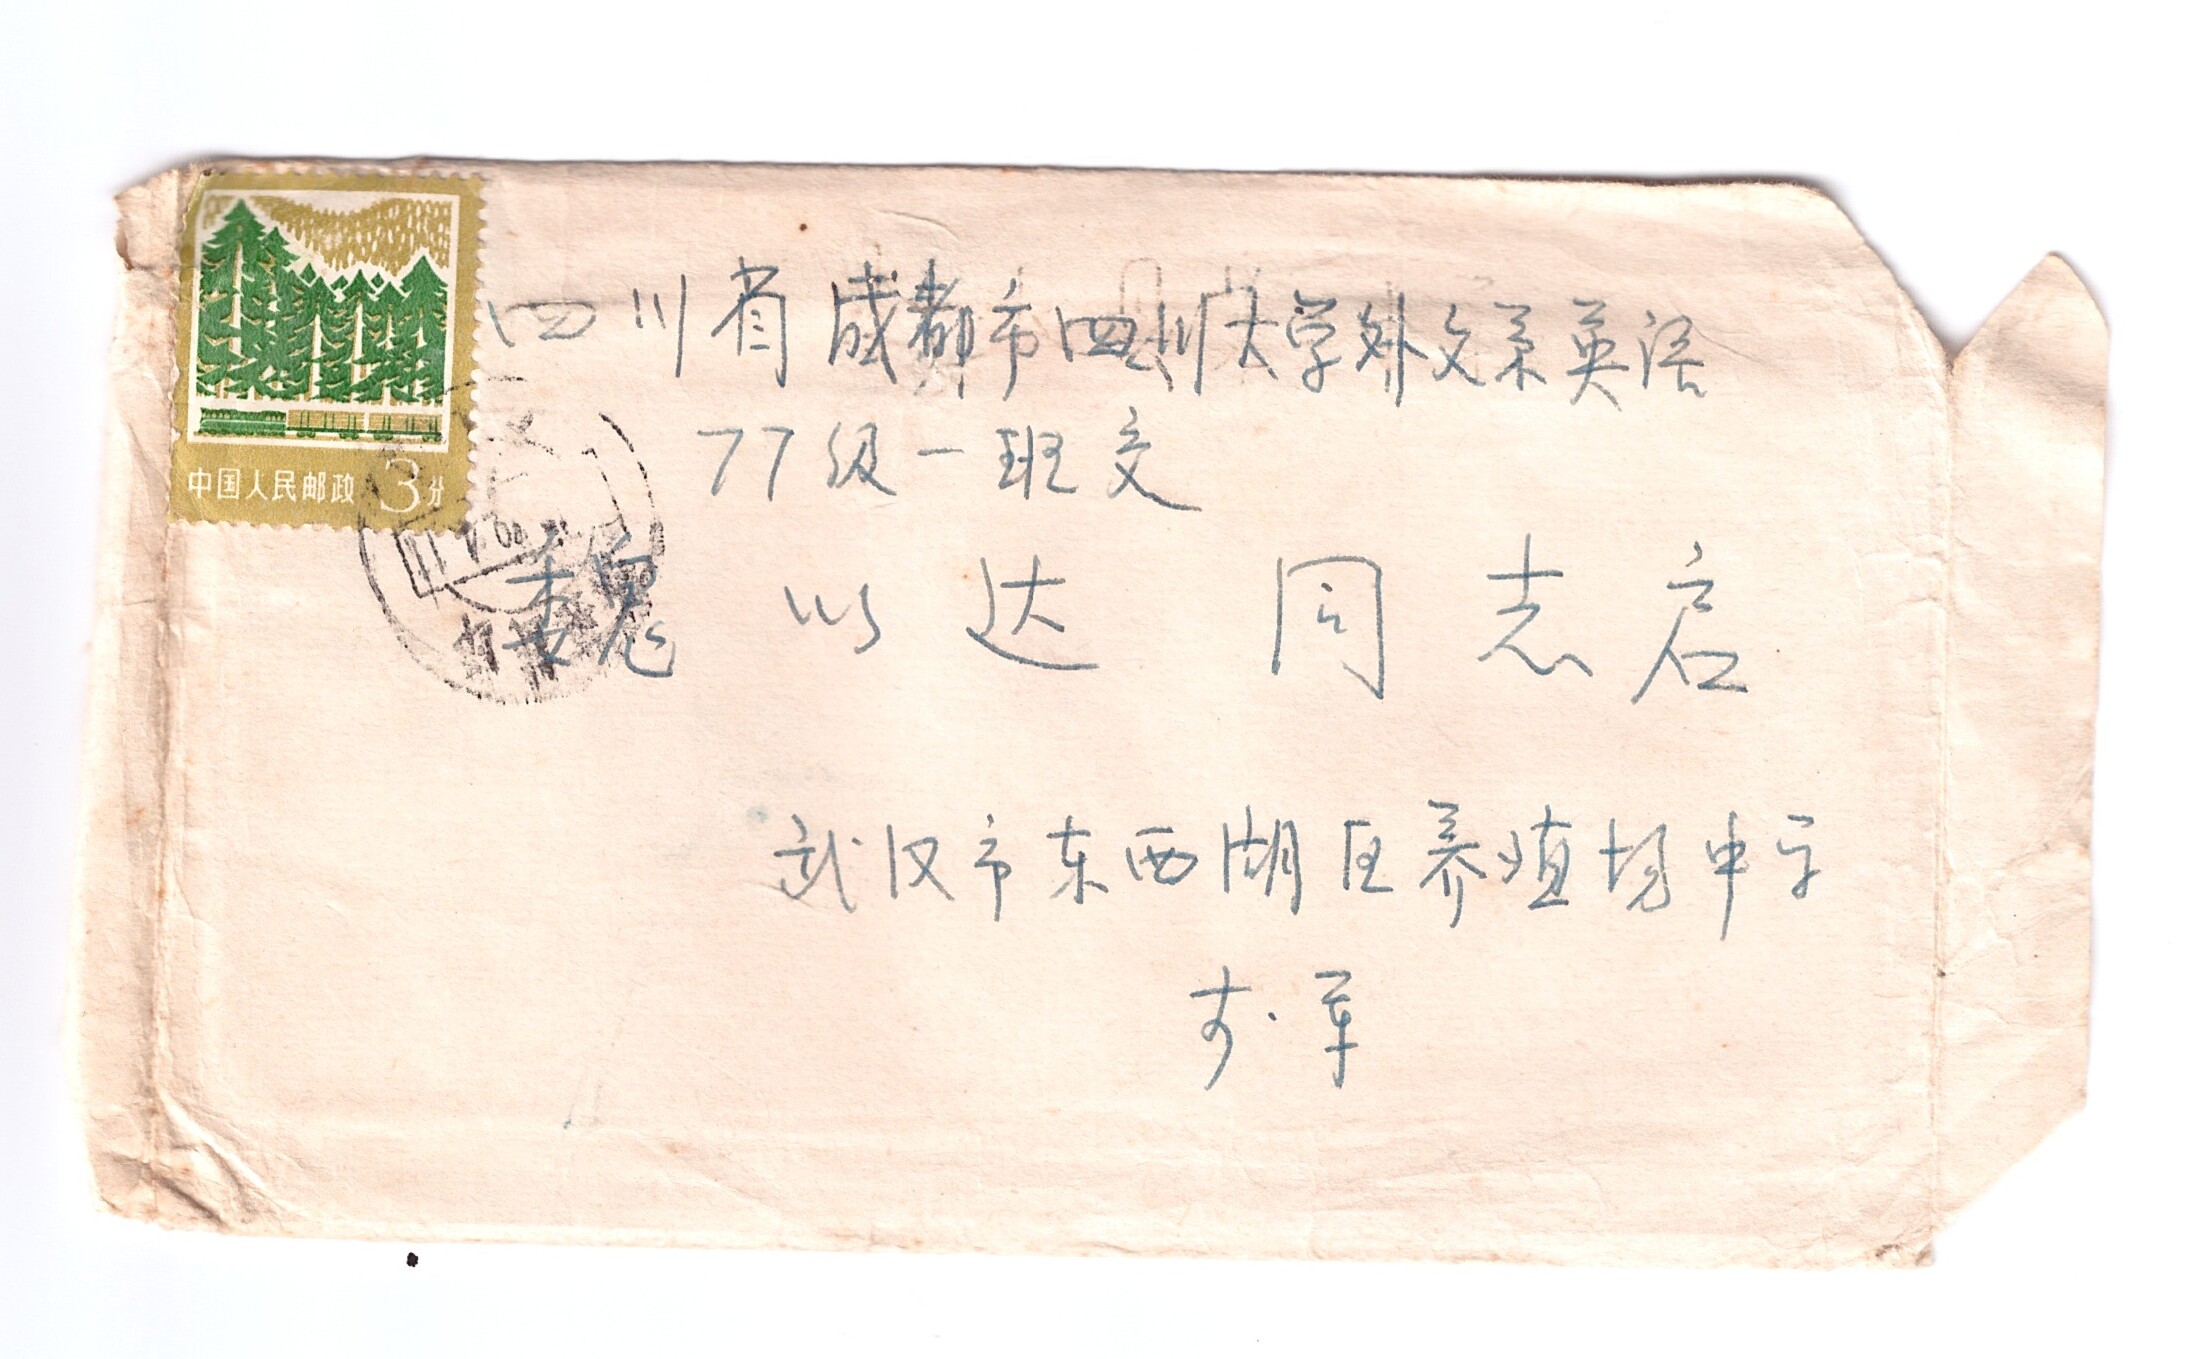 中国人民邮政 3分
四川省成都市四川大学外文系英语
77级一班交
魏以达 同志启
武汉市东西湖区养殖场中学